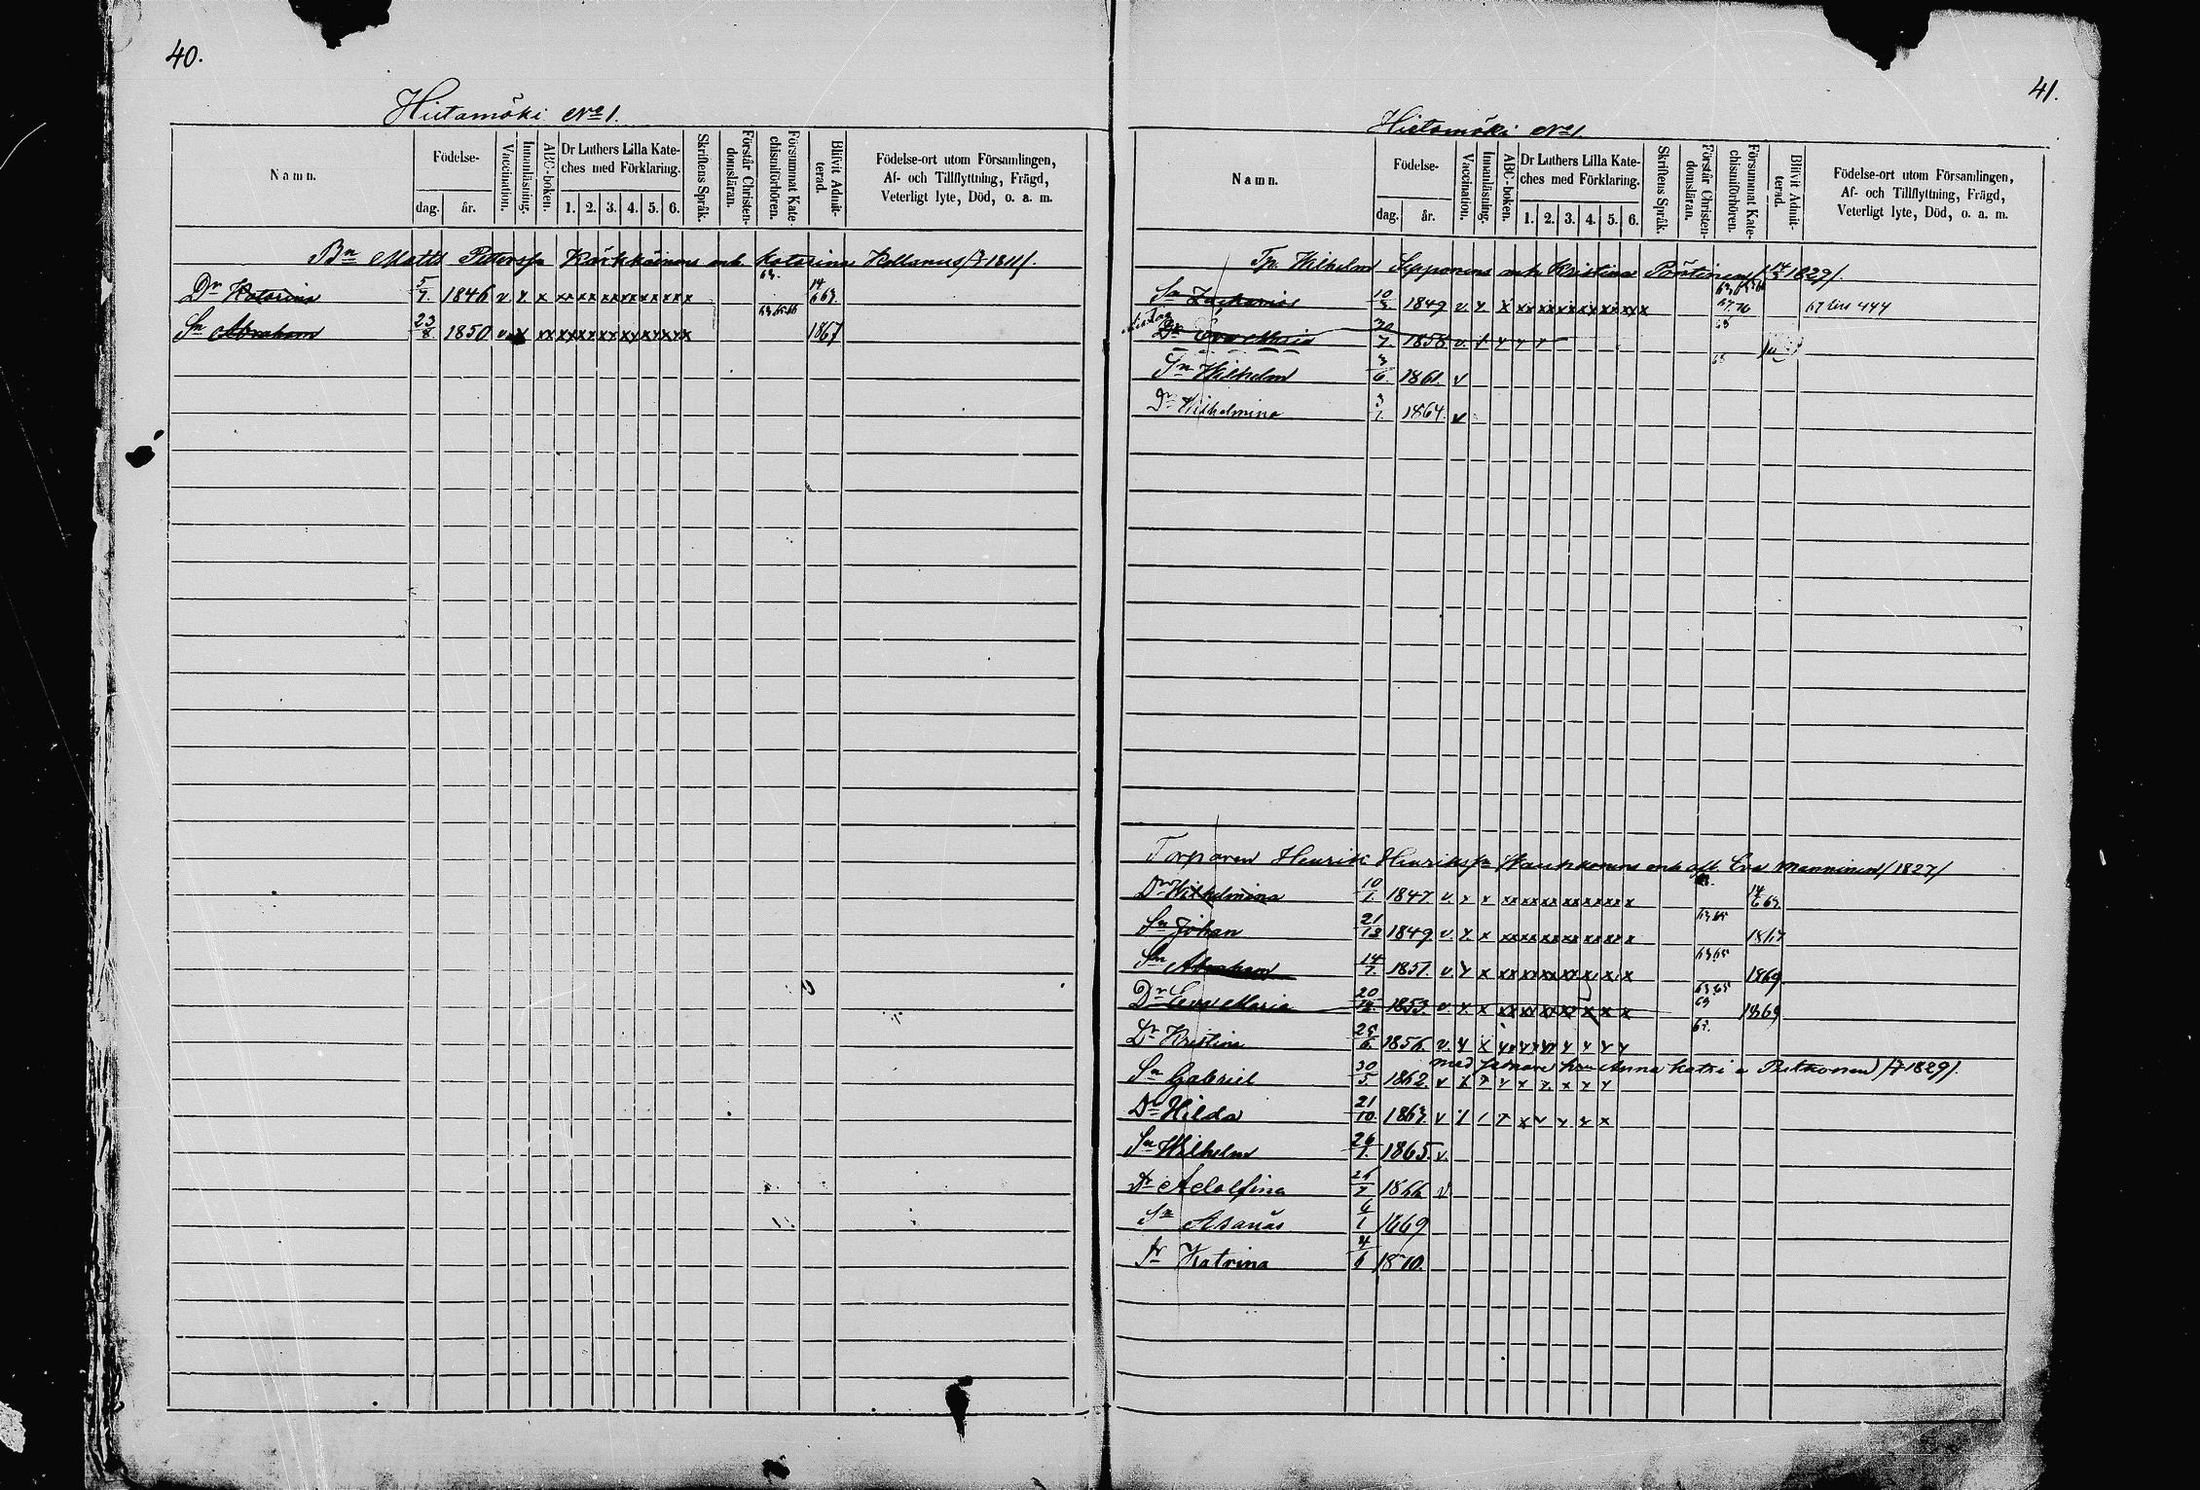 40.
Hietamäki No 1.
Namn.
Födelse-
dag.
år.
Vaccination.
Innanläsning.
ABC-boken.
Dr Luthers Lilla Kate-
ches med Förklaring.
1. 2. 3. 4. 5. 6.
Skriftens Språk.
Förstår Christen-
domsläran.
Försummat Kate-
chismiförhören.
Blifvit Admit-
terad.
Födelse-ort utom Församlingen,
Af- och Tillflyttning, Frägd,
Veterligt lyte, Död, o. a. m.
Bn Matts Petterss Kärkkäinens enk. Katarina Kollanus /f 1811/.
63.
Dr Katarina 5/7. 1846 v x x xx xx xx xx x x x x x 14/6 63.
63 65 66
Sn Abraham 23/8 1850 v x xx xx xx xx xx xx xx x 1867
41.
Hietamäki No 1.
Namn.
Födelse-
dag.
år.
Vaccination.
Innanläsning.
ABC-boken.
Dr Luthers Lilla Kate-
ches med Förklaring.
1. 2. 3. 4. 5. 6.
Skriftens Språk.
Förstår Christen-
domsläran.
Försummat Kate-
chismiförhören.
Blifvit Admit-
terad.
Födelse-ort utom Församlingen,
Af- och Tillflyttning, Frägd,
Veterligt lyte, Död, o. a. m.
Tp. Wilhelm Sepponens enk Kristina Pöntinen 1829/.
Sn Zacharias 10/3 1849 v. x x xx xx xx xx xx xx x 67 444
Dr Eva Maria 30/7. 1858 v. x x x x 63
Sn Wilhelm 3/6. 1861 v 65
Dr Wilhelmina 3/1. 1864. v
Torparen Henrik Henrikss Kaukonens enk afl. Eva Manninen /1827/
Dr Wilhelmina 10/1. 1847 v. x x xx xx xx xx xx xx x 14/6 63.
Sn Johan 21/12 1849 v. x x xx xx xx xx xx xx x 63 65 1867
Sn Abraham 14/7. 1851 v. x x xx xx xx xx x x x 63 65 1869
Dr Eva Maria 20/12. 1853 v. x. x xx xx xx xx x x x 63 65 69 1869
Dr Kristina 25/6. 1856. v. x x x x x x x x x x 63.
med hu Anna Katri a Pitkonen /f 1829/.
Sn Gabriel 30/5 1862 v x x x x x x x x
Dr Hilda 21/10. 1863 v x x x x x x x x
Sn Wilhelm 26/1. 1865. v.
Dr Adolfina 25/7 1866 v
Sn Asarias 6/1 1869
Dr Katrina 4/6 1870.